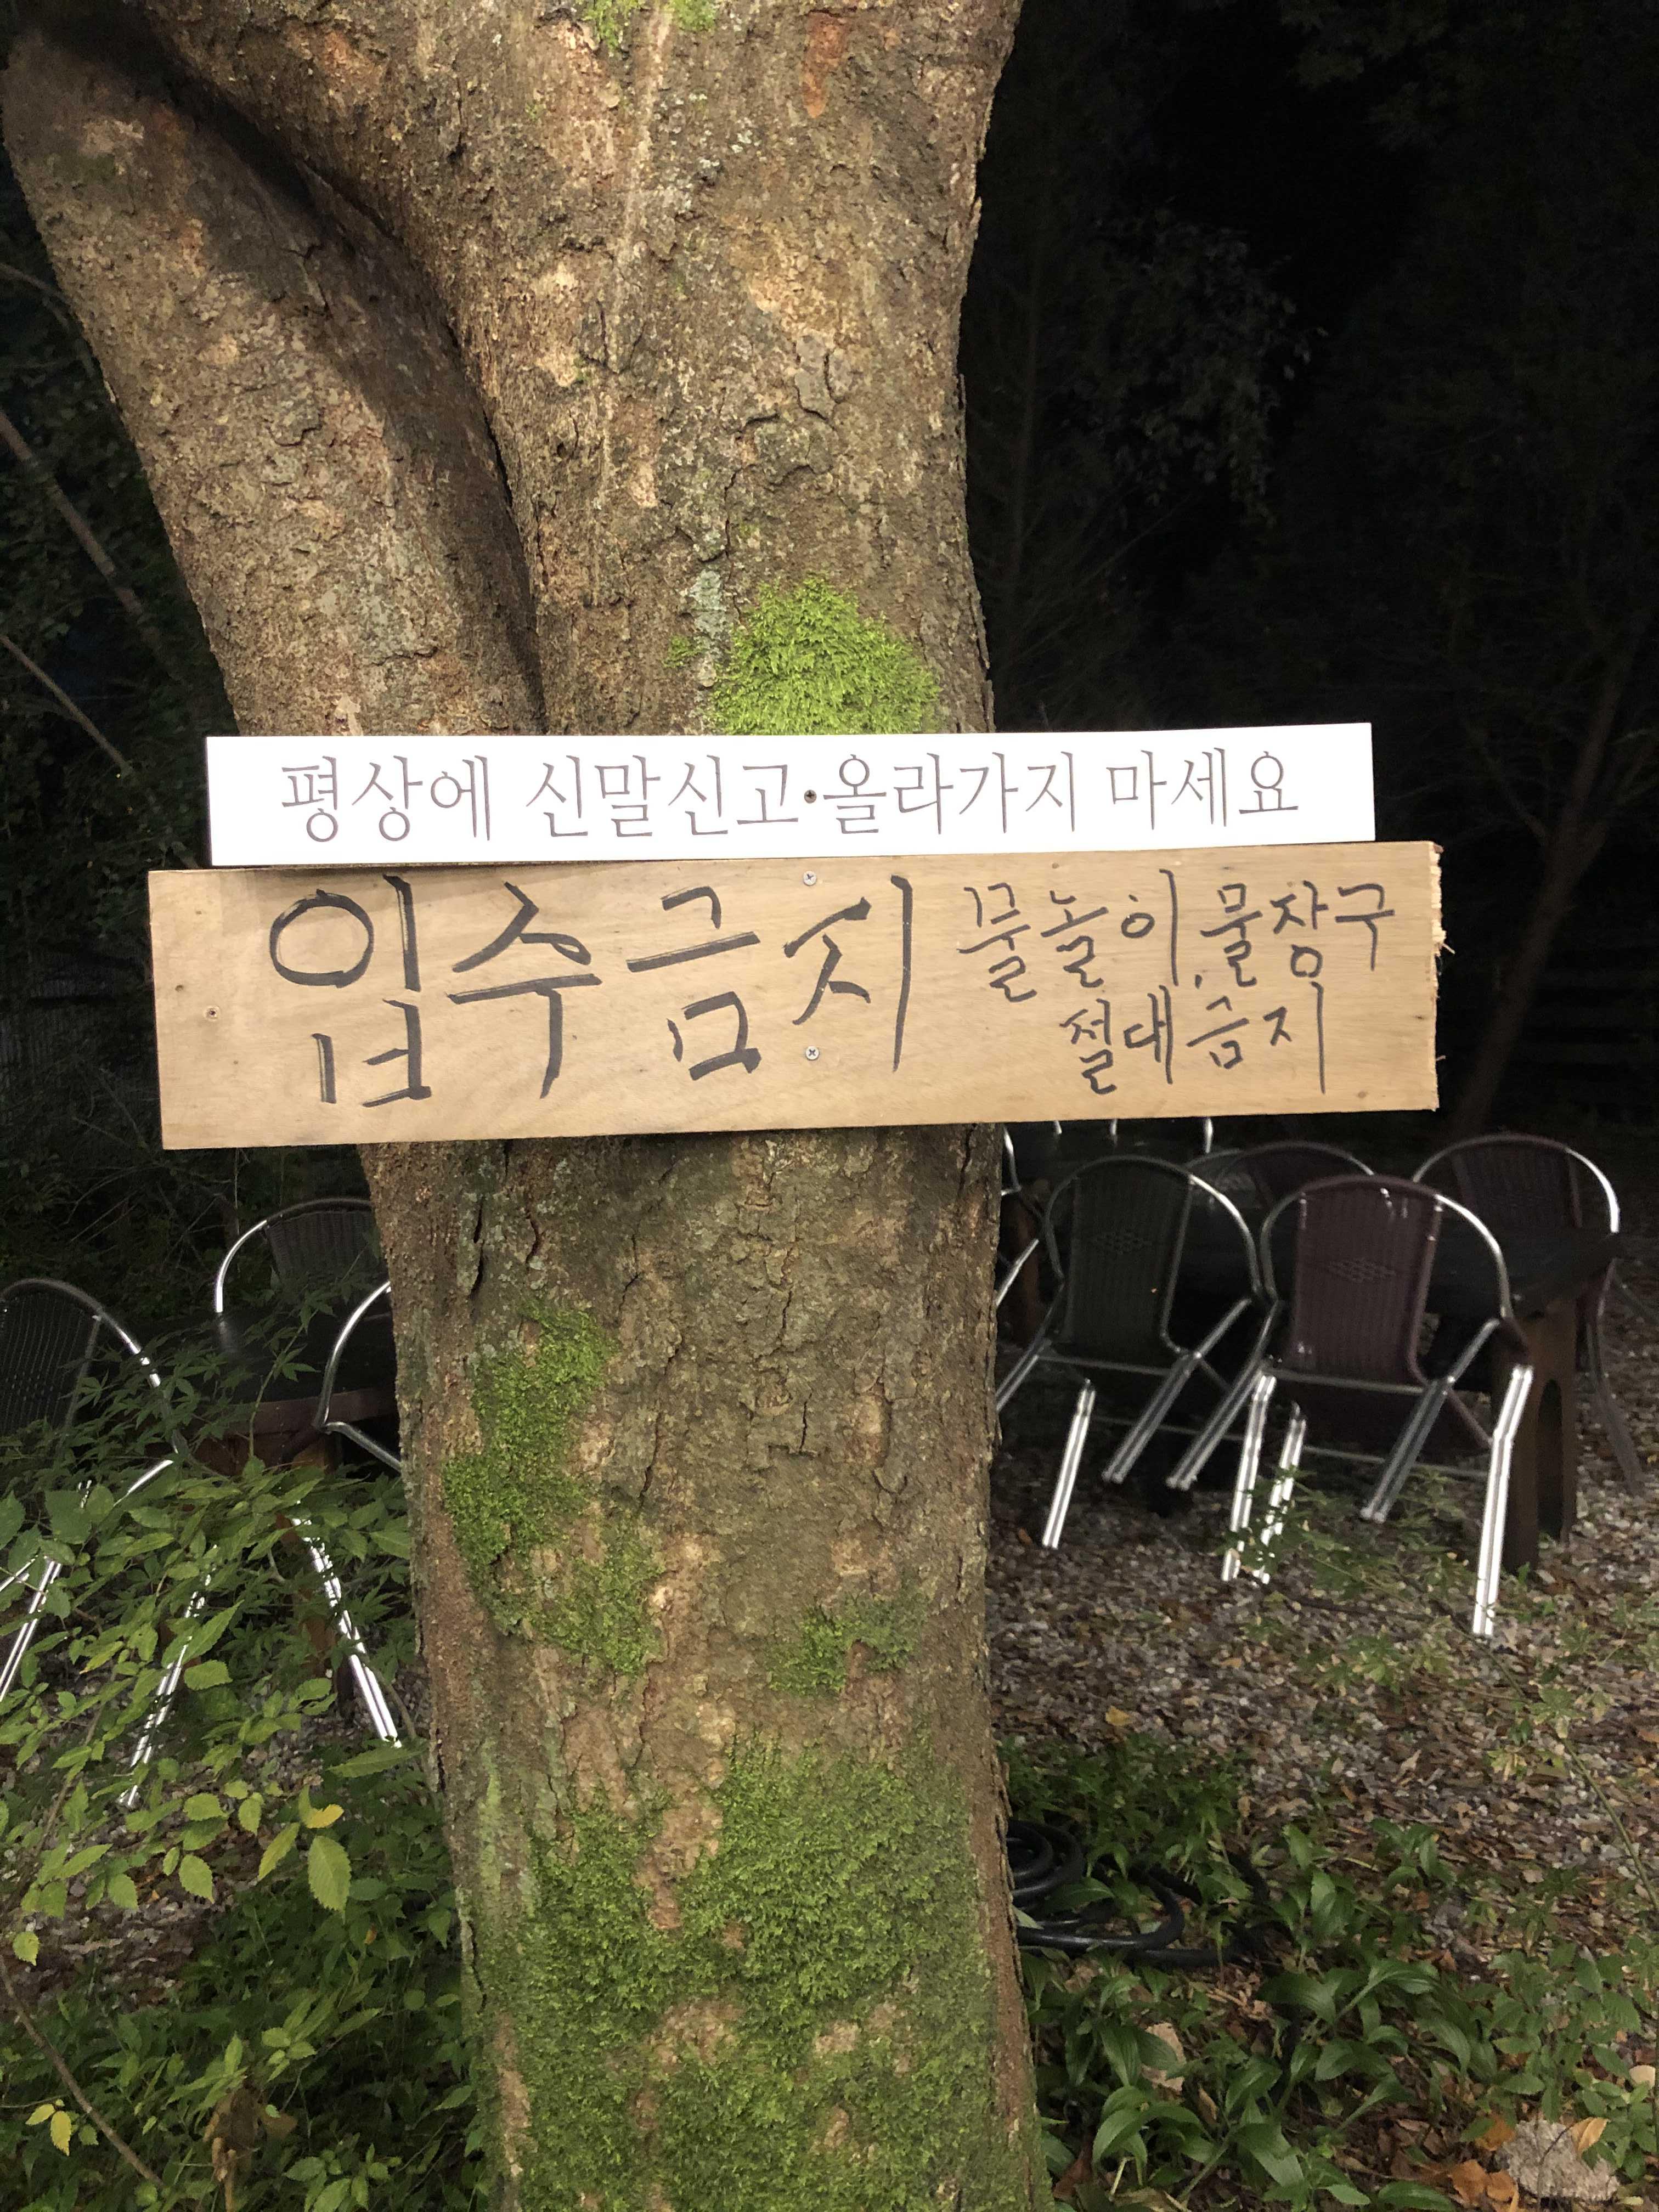 평상에 신말신고 올라가지 마세요
입수금지
물놀이, 물장구
절대금지